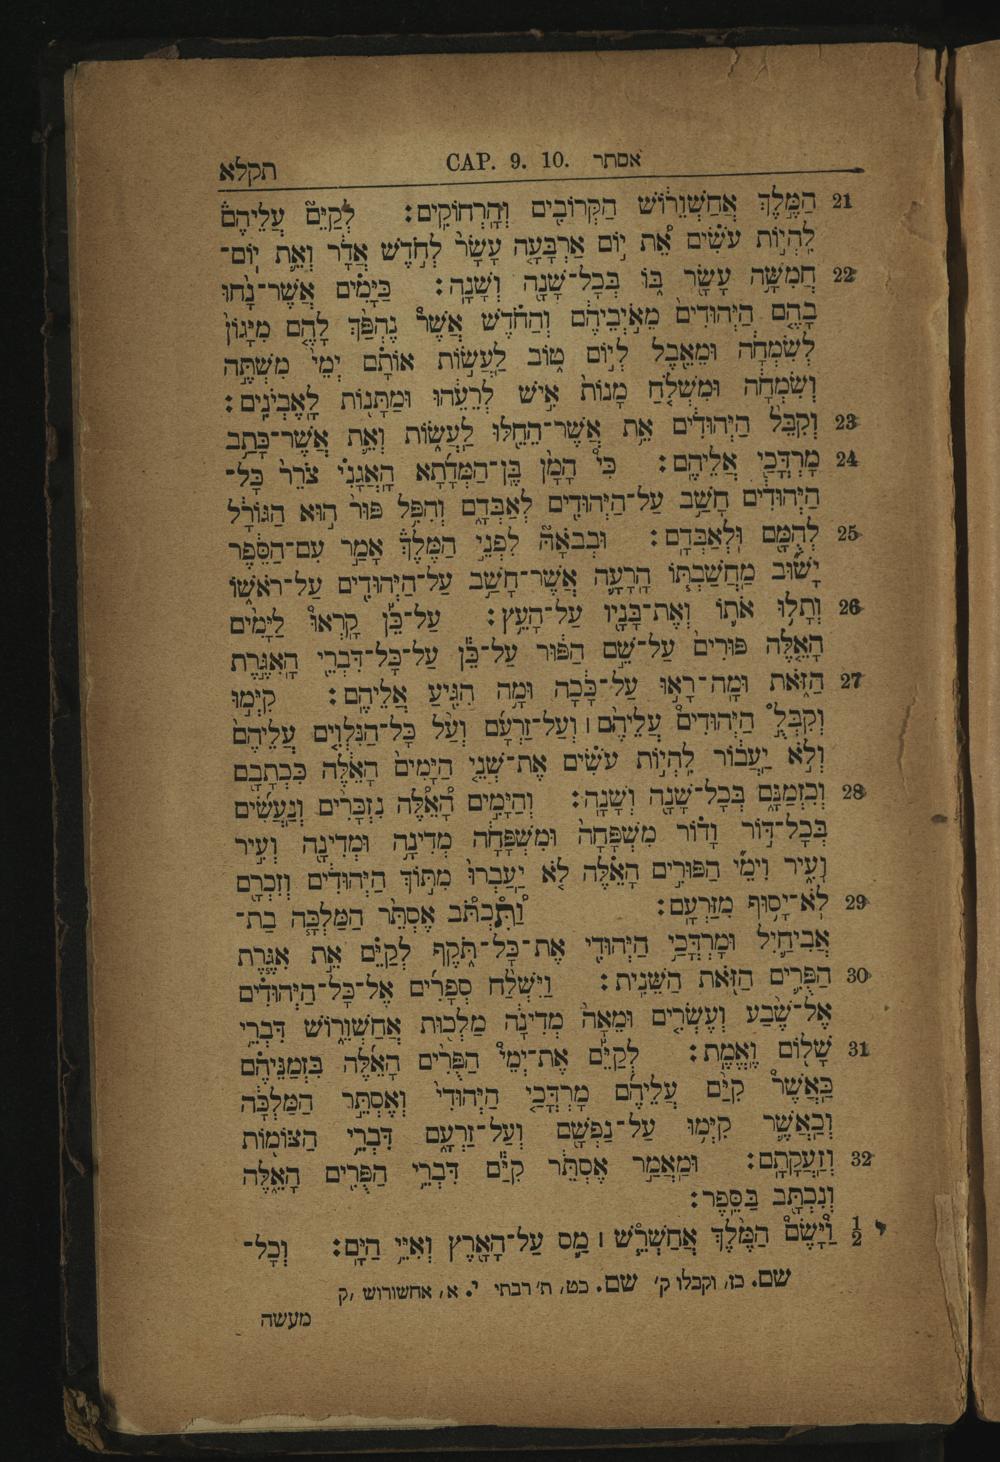 תקלא CAP. 9. 10. אסתר
21 הַמֶּ֣לֶךְ אֲחַשְׁוֵר֔וֹשׁ הַקְּרוֹבִ֖ים וְהָֽרְחוֹקִֽים׃ לְקַיֵּם֮ עֲלֵיהֶם֒
לִֽהְי֣וֹת עֹשִׂ֗ים אֵ֠ת י֣וֹם אַרְבָּעָ֤ה עָשָׂר֙ לְחֹ֣דֶשׁ אֲדָ֔ר וְאֵ֛ת יֽוֹם־
22 חֲמִשָּׁ֥ה עָשָׂ֖ר בּ֑וֹ בְּכָל־שָׁנָ֖ה וְשָׁנָֽה׃ כַּיָּמִ֗ים אֲשֶׁר־נָ֨חוּ
בָהֶ֤ם הַיְּהוּדִים֙ מֵאֹ֣יְבֵיהֶ֔ם וְהַחֹ֗דֶשׁ אֲשֶׁר֩ נֶהְפַּ֨ךְ לָהֶ֤ם מִיָּגוֹן֙
לְשִׂמְחָ֔ה וּמֵאֵ֖בֶל לְי֣וֹם ט֑וֹב לַעֲשׂ֣וֹת אוֹתָ֗ם יְמֵי֙ מִשְׁתֶּ֣ה
וְשִׂמְחָ֔ה וּמִשְׁלֹ֤חַ מָנוֹת֙ אִ֣ישׁ לְרֵעֵ֔הוּ וּמַתָּנ֖וֹת לָֽאֶבְיֹנִֽים׃
23 וְקִבֵּל֙ הַיְּהוּדִ֔ים אֵ֥ת אֲשֶׁר־הֵחֵ֖לּוּ לַעֲשׂ֑וֹת וְאֵ֛ת אֲשֶׁר־כָּתַ֥ב
24 מָרְדֳּכַ֖י אֲלֵיהֶֽם׃ כִּי֩ הָמָ֨ן בֶּֽן־הַמְּדָ֜תָא הָֽאֲגָגִ֗י צֹרֵר֙ כָּל־
הַיְּהוּדִ֔ים חָשַׁ֥ב עַל־הַיְּהוּדִ֖ים לְאַבְּדָ֑ם וְהִפִּ֥ל פּוּר֙ ה֣וּא הַגּוֹרָ֔ל
25 לְהֻמָּ֖ם וּֽלְאַבְּדָֽם׃ וּבְבֹאָהּ֮ לִפְנֵ֣י הַמֶּלֶךְ֒ אָמַ֣ר עִם־הַסֵּ֔פֶר
יָשׁ֞וּב מַחֲשַׁבְתּ֧וֹ הָרָעָ֛ה אֲשֶׁר־חָשַׁ֥ב עַל־הַיְּהוּדִ֖ים עַל־רֹאשׁ֑וֹ
26 וְתָל֥וּ אֹת֛וֹ וְאֶת־בָּנָ֖יו עַל־הָעֵֽץ׃ עַל־כֵּ֡ן קָֽרְאוּ֩ לַיָּמִ֨ים
הָאֵ֤לֶּה פוּרִים֙ עַל־שֵׁ֣ם הַפּ֔וּר עַל־כֵּ֕ן עַל־כָּל־דִּבְרֵ֖י הָאִגֶּ֣רֶת
27 הַזֹּ֑את וּמָֽה־רָא֣וּ עַל־כָּ֔כָה וּמָ֥ה הִגִּ֖יעַ אֲלֵיהֶֽם׃ קִיְּמ֣וּ
וְקִבְּלֻ֣ הַיְּהוּדִים֩ עֲלֵיהֶ֨ם ׀ וְעַל־זַרְעָ֜ם וְעַ֨ל כָּל־הַנִּלְוִ֤ים עֲלֵיהֶם֙
וְלֹ֣א יַעֲב֔וֹר לִֽהְי֣וֹת עֹשִׂ֗ים אֶת־שְׁנֵ֤י הַיָּמִים֙ הָאֵ֔לֶּה כִּכְתָבָ֖ם
28 וְכִזְמַנָּ֑ם בְּכָל־שָׁנָ֖ה וְשָׁנָֽה׃ וְהַיָּמִ֣ים הָ֠אֵ֠לֶּה נִזְכָּרִ֨ים וְנַעֲשִׂ֜ים
בְּכָל־דּ֣וֹר וָד֗וֹר מִשְׁפָּחָה֙ וּמִשְׁפָּחָ֔ה מְדִינָ֥ה וּמְדִינָ֖ה וְעִ֣יר
וָעִ֑יר וִימֵ֞י הַפּוּרִ֣ים הָאֵ֗לֶּה לֹ֤א יַֽעַבְרוּ֙ מִתּ֣וֹךְ הַיְּהוּדִ֔ים וְזִכְרָ֖ם
29 לֹא־יָס֥וּף מִזַּרְעָֽם׃ וַ֠תִּכְתֹּב אֶסְתֵּ֨ר הַמַּלְכָּ֧ה בַת־
אֲבִיחַ֛יִל וּמָרְדֳּכַ֥י הַיְּהוּדִ֖י אֶת־כָּל־תֹּ֑קֶף לְקַיֵּ֗ם אֵ֣ת אִגֶּ֧רֶת
30 הַפֻּרִ֛ים הַזֹּ֖את הַשֵּׁנִֽית׃ וַיִּשְׁלַ֨ח סְפָרִ֜ים אֶל־כָּל־הַיְּהוּדִ֗ים
אֶל־שֶׁ֨בַע וְעֶשְׂרִ֤ים וּמֵאָה֙ מְדִינָ֔ה מַלְכ֖וּת אֲחַשְׁוֵר֑וֹשׁ דִּבְרֵ֥י
31 שָׁל֖וֹם וֶאֱמֶֽת׃ לְקַיֵּ֡ם אֶת־יְמֵי֩ הַפֻּרִ֨ים הָאֵ֜לֶּה בִּזְמַנֵּיהֶ֗ם
כַּאֲשֶׁר֩ קִיַּ֨ם עֲלֵיהֶ֜ם מָרְדֳּכַ֤י הַיְּהוּדִי֙ וְאֶסְתֵּ֣ר הַמַּלְכָּ֔ה
וְכַאֲשֶׁ֛ר קִיְּמ֥וּ עַל־נַפְשָׁ֖ם וְעַל־זַרְעָ֑ם דִּבְרֵ֥י הַצּוֹמ֖וֹת
32 וְזַעֲקָתָֽם׃ וּמַאֲמַ֣ר אֶסְתֵּ֔ר קִיַּ֕ם דִּבְרֵ֥י הַפֻּרִ֖ים הָאֵ֑לֶּה
וְנִכְתָּ֖ב בַּסֵּֽפֶר׃
1 2 וַיָּשֶׂם֩ הַמֶּ֨לֶךְ אֲחַשְׁרֵ֧שׁ ׀ מַ֛ס עַל־הָאָ֖רֶץ וְאִיֵּ֥י הַיָּֽם׃ וְכָל־
שם. כז, וקבלו ק׳ שם. כט, ת׳ רבתי י. א, אחשורוש ,ק
מעשה